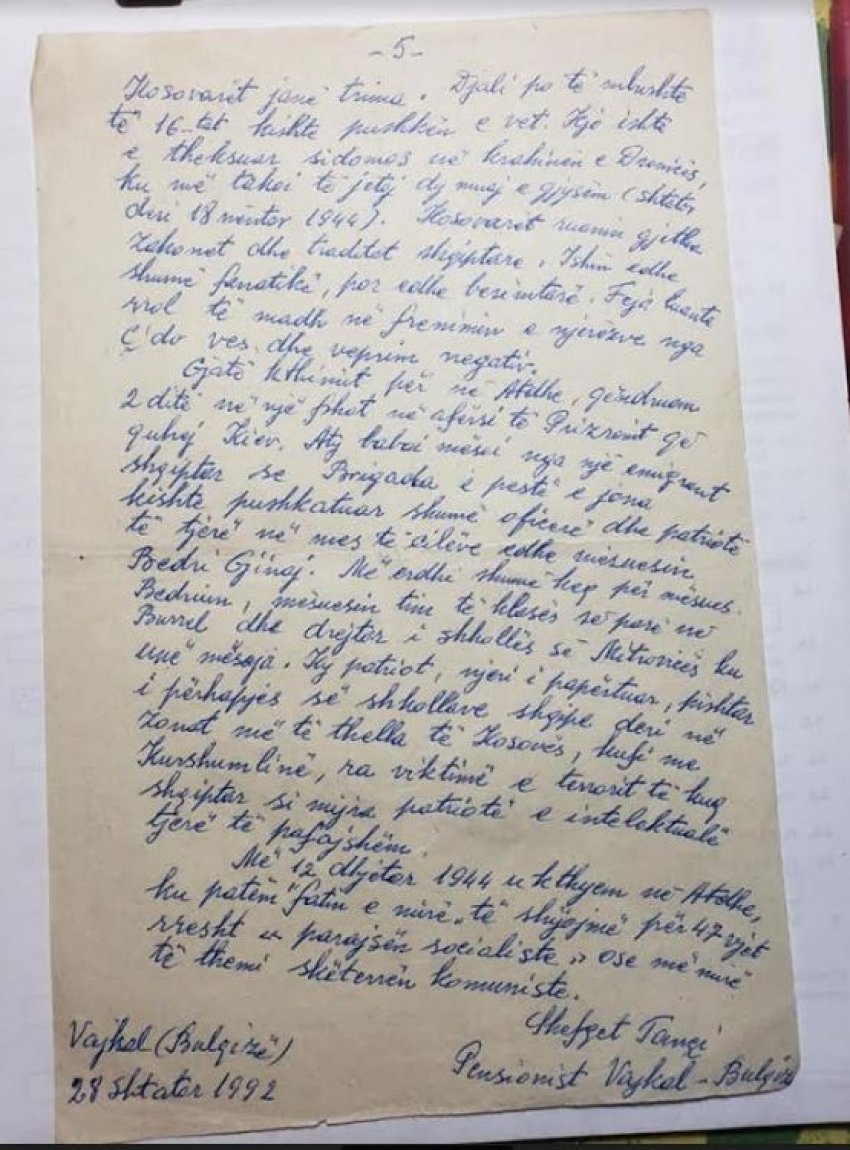 -5-
Kosovarët janë trima. Djali po të mbushte
të 16-tat kishte pushkën e vet. Kjo ishte
e theksuar sidomos në krahinën e Drenicës,
ku më takoi të jetoj dy muaj e gjysëm (shtator
deri 18 nëntor 1944). Kosovarët ruanin gjitha
zakonet dhe traditat shqiptare. Ishin edhe
shumë fanatikë, por edhe besimtarë. Feja luante
rrol të madh në frenimin e njerëzve nga
ç'do ves dhe veprim negativ.
Gjatë kthimit për në Atdhe, qëndruam
2 ditë në një fshat në afërsi të Prizrenit që
quhej Kiev. Aty babai mësoi nga një emigrant
shqiptar se Brigada e pestë e jona
kishte pushkatuar shumë oficerë dhe patriotë
të tjerë në mes të cilëve edhe mësuesin
Bedri Gjinaj. Më erdhi shumë keq për mësues
Bedriun, mësuesin tim të klasës së parë në
Burrel dhe drejtor i shkollës së Mitrovicës ku
unë mësoja. Ky patriot, njeri i papërtuar, pishtar
i përhapjes së shkollave shqipe deri në
zonat më të thella të Kosovës, kufi me
Kurshumlinë, ra viktimë e terrorit të kuq
shqiptar si mijra patriotë e intelektualë
tjerë të pafajshëm.
Më 12 dhjetor 1944 u kthyem në Atdhe,
ku patëm "fatin e mirë" të shijojmë për 47 vjet
rresht "parajsën socialiste" ose më mirë
të themi skëterrën komuniste.
Shefqet Tançi
Vajkal (Bulqizë)
Pensionist Vajkal - Bulqizë
28 Shtator 1992